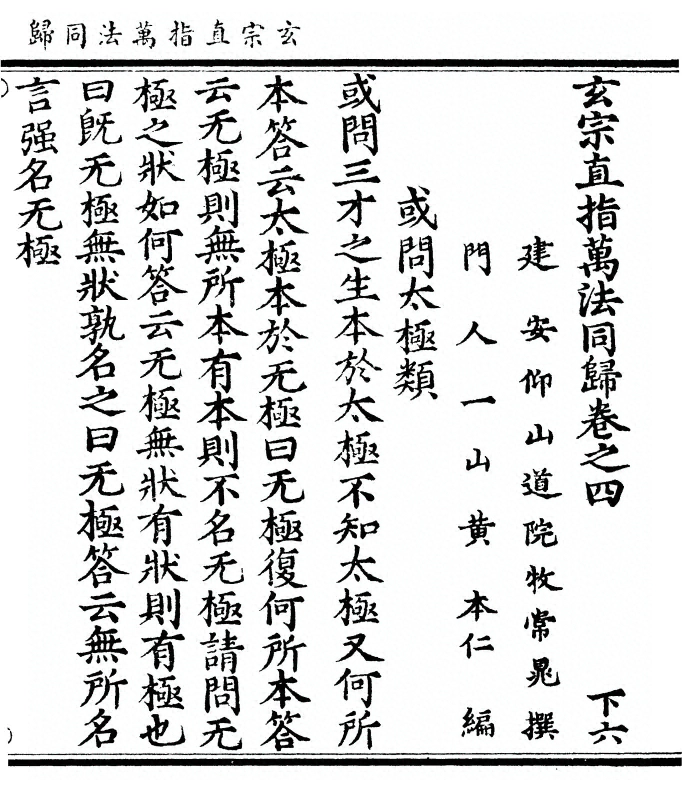 玄宗直指萬法同歸
玄宗直指萬法同歸卷之四　下六
建安仰山道院牧常晁撰
門人一山黄本仁編
或問太極類
或問三才之生本於太極不知太極又何所
本答云太極本於无極曰无極復何所本答
云无極則無所本有本則不名无極請問无
極之狀如何答云无極無狀有狀則有極也
曰旣无極無狀孰名之曰无極答云無所名
言强名无極